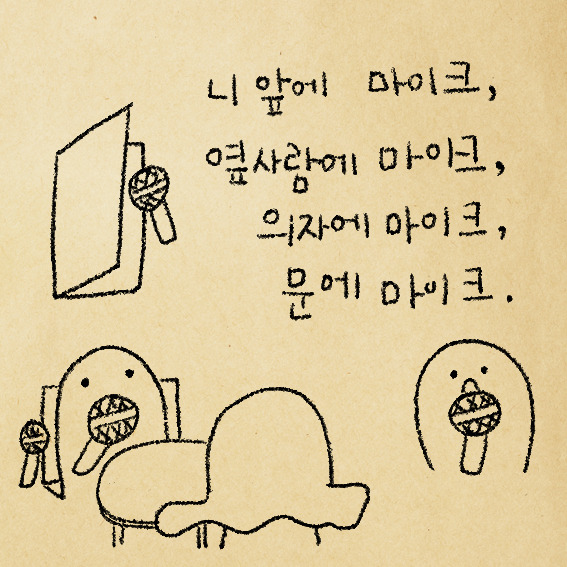 니 앞에 마이크,
옆사람에 마이크,
의자에 마이크,
문에 마이크.